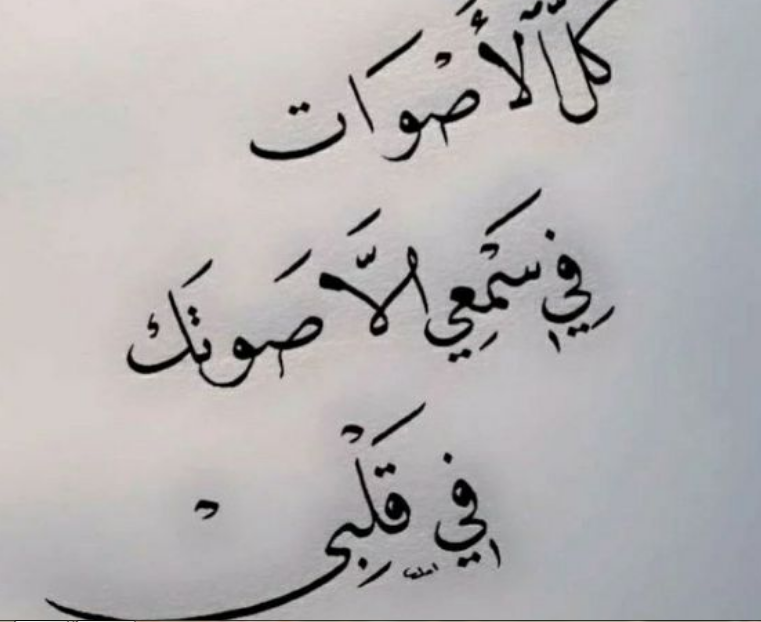 كلّ الأصْوَات
فِي سَمْعِي الاَّ صَوتَك
في قَلْبِي